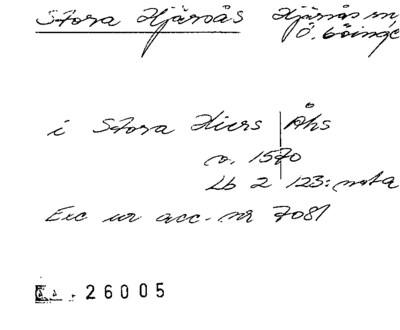 Stora Hjärsås Hjärsås sn,
Ö. Göinge
i Stora Hiers | Åhs
o. 1570
Lb 2 123: nota
Exc ur acc. nr 7081
26005